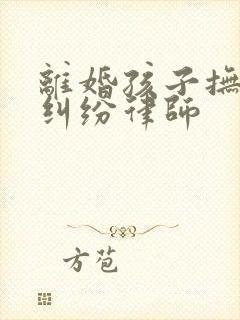 離婚孩子撫
糾纷律師
方苞